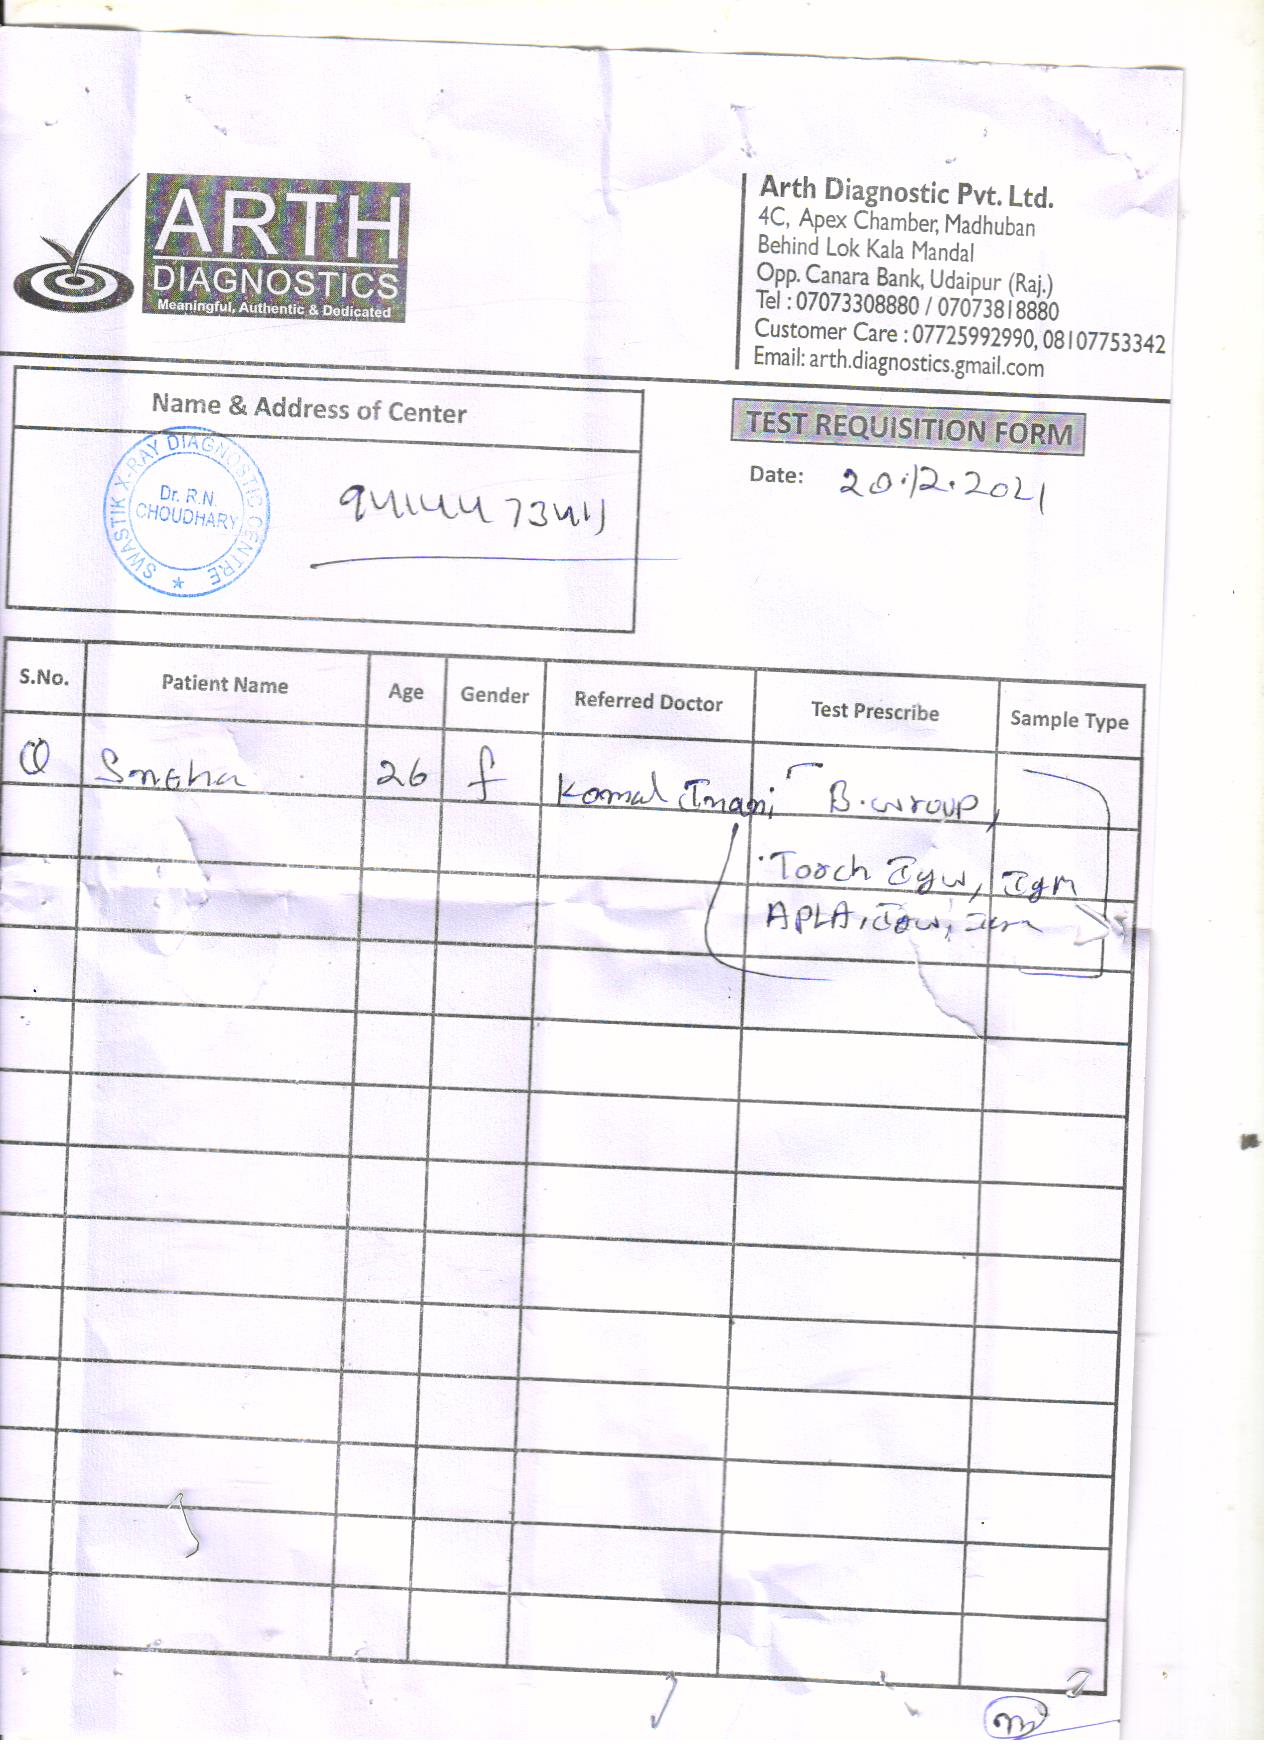 ARTH
DIAGNOSTICS
Meaningful, Authentic & Dedicated
Arth Diagnostic Pvt. Ltd.
4C, Apex Chamber, Madhuban
Behind Lok Kala Mandal
Opp. Canara Bank, Udaipur (Raj.)
Tel : 07073308880 / 07073818880
Customer Care : 07725992990, 08107753342
Email: arth.diagnostics.gmail.com
Name & Address of Center
SWASTIK X-RAY DIAGNOSTIC CENTRE
Dr. R.N.
CHOUDHARY
TEST REQUISITION FORM
Date: 20.12.2021
S.No. Patient Name Age Gender Referred Doctor Test Prescribe Sample Type
Sneha 26 f Komal Inani B.Group,
Torch IgG, IgM
APLA, IgG, IgM